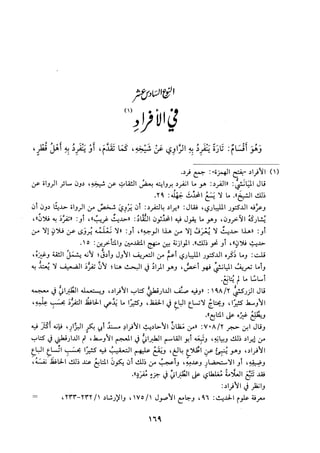 النوع السادس عشر
في الأفراد (١)
وَهُوَ أَقسَامٌ: تَارَةً يَنْفَرِدُ بِهِ الرَّاوِي عَنْ شَيْخِهِ، كَمَا تَقَدَّمَ، أَوْ يَنْفَرِدُ بِهِ أَهْلُ قُطْرٍ،
(١) الأفراد بفتح الهمزة: جمع فرد.
قال الميانشي: «الفرد: هو ما انفرد بروايته بعض الثقات عن شيخه، دون سائر الرواة عن
ذلك الشيخ». ما لا يسع المحدث جهله: ٢٩.
وعرفه الدكتور المليباري، فقال: «يراد بالتفرد: أن يروي شخص من الرواة حديثًا دون أن
يشاركه الآخرون، وهو ما يقول فيه المحدثون النقاد: «حديث غريب»، أو: «تفرد به فلان»،
أو: «هذا حديث لا يعرف إلا من هذا الوجه»، أو: «لا نعلمه يروى عن فلان إلا من
حديث فلان»، أو نحو ذلك». الموازنة بين منهج المتقدمين والمتأخرين: ١٥.
قلت: وما ذكره الدكتور المليباري أعم من التعريف الأول وأدق؛ لأنه يشمل الثقة وغيره،
وأما تعريف الميانشي فهو أخص، وهو المراد في البحث هنا؛ لأن تفرد الضعيف لا يعتد به
أساسًا ما لم يتابع.
قال الزركشي ١٩٨/٢: «وفيه صنف الدارقطني كتاب الأفراد، ويستعمله الطبراني في معجمه
الأوسط كثيرًا، ويحتاج لاتساع الباع في الحفظ، وكثيرًا ما يدعي الحافظ التفرد بحسب علمه،
ويطلع غيره على المتابع».
وقال ابن حجر ٧٠٨/٢: «من مظان الأحاديث الأفراد مسند أبي بكر البزار، فإنه أكثر فيه
من إيراد ذلك وبيانه، وتبعه أبو القاسم الطبراني في المعجم الأوسط، ثم الدارقطني في كتاب
الأفراد، وهو ينبئ عن اطلاع بالغ، ويقع عليهم التعقيب فيه كثيرًا بحسب اتساع الباع
وضيقه، أو الاستحضار وعدمه، وأعجب من ذلك أن يكون المتابع عند ذلك الحافظ نفسه،
فقد تتبع العلامة مغلطاي على الطبراني في جزء مفرد».
وانظر في الأفراد:
معرفة علوم الحديث: ٩٦، وجامع الأصول ١/ ١٧٥، والإرشاد ١/ ٢٣٢-٢٣٣، =
١٦٩